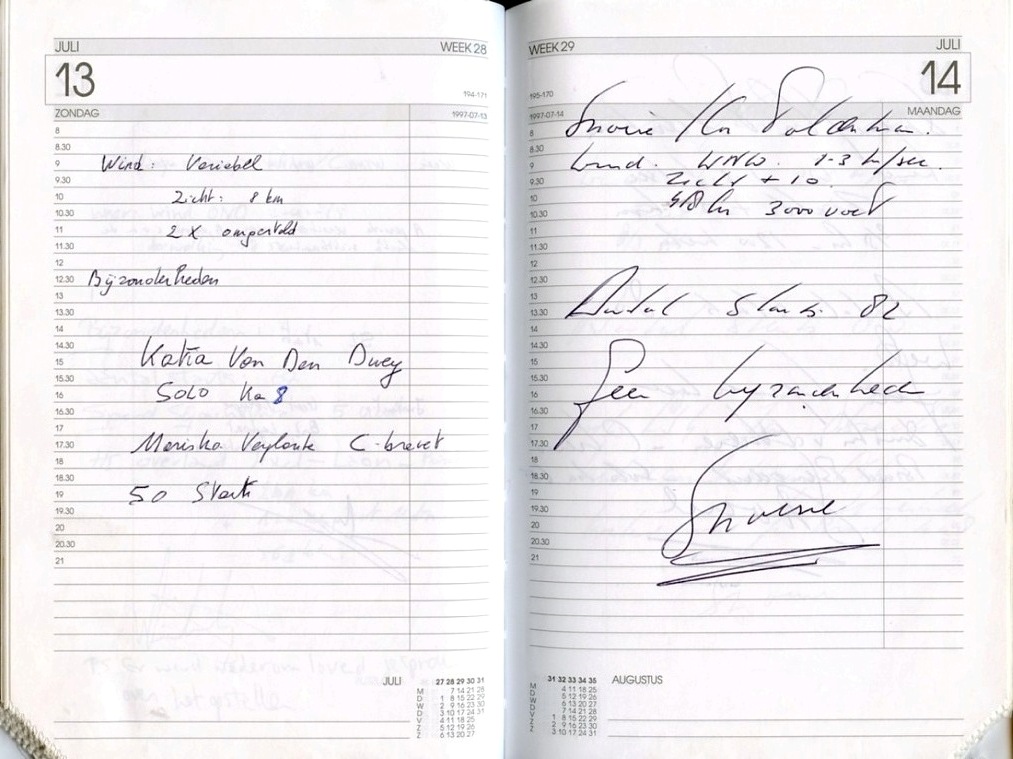 JULI WEEK 28
13
194-171
ZONDAG 1997-07-13
8
8.30
9 Wind: Variabel
9.30
10 Zicht: 8 km
10.30
11 2 X omgesteld
11.30
12
12.30 Bijzonderheden
13
13.30
14
14.30
15 Katia Von Den
15.30
16 SOLO Ka 8
16.30
17
17.30 Mariska C-brevet
18
18.30
19 50 Starts
19.30
20
20.30
21
JULI
27 28 29 30 31
M 7 14 21 28
D 1 8 15 22 29
W 2 9 16 23 30
D 3 10 17 24 31
V 4 11 18 25
Z 5 12 19 26
Z 6 13 20 27
WEEK 29 JULI
14
195-170
1997-07-14 MAANDAG
8
8.30
9 Wind. WNW. 1-3 m/sec.
9.30 Zicht + 10.
10
10.30 3000 voet
11
11.30
12
12.30
13
13.30 Aantal Starts. 82
14
14.30
15
15.30
16 Geen byzonderheden
16.30
17
17.30
18
18.30
19
19.30
20
20.30
21
31 32 33 34 35
M 4 11 18 25
D 5 12 19 26
W 6 13 20 27
D 7 14 21 28
V 1 8 15 22 29
Z 2 9 16 23 30
Z 3 10 17 24 31
AUGUSTUS